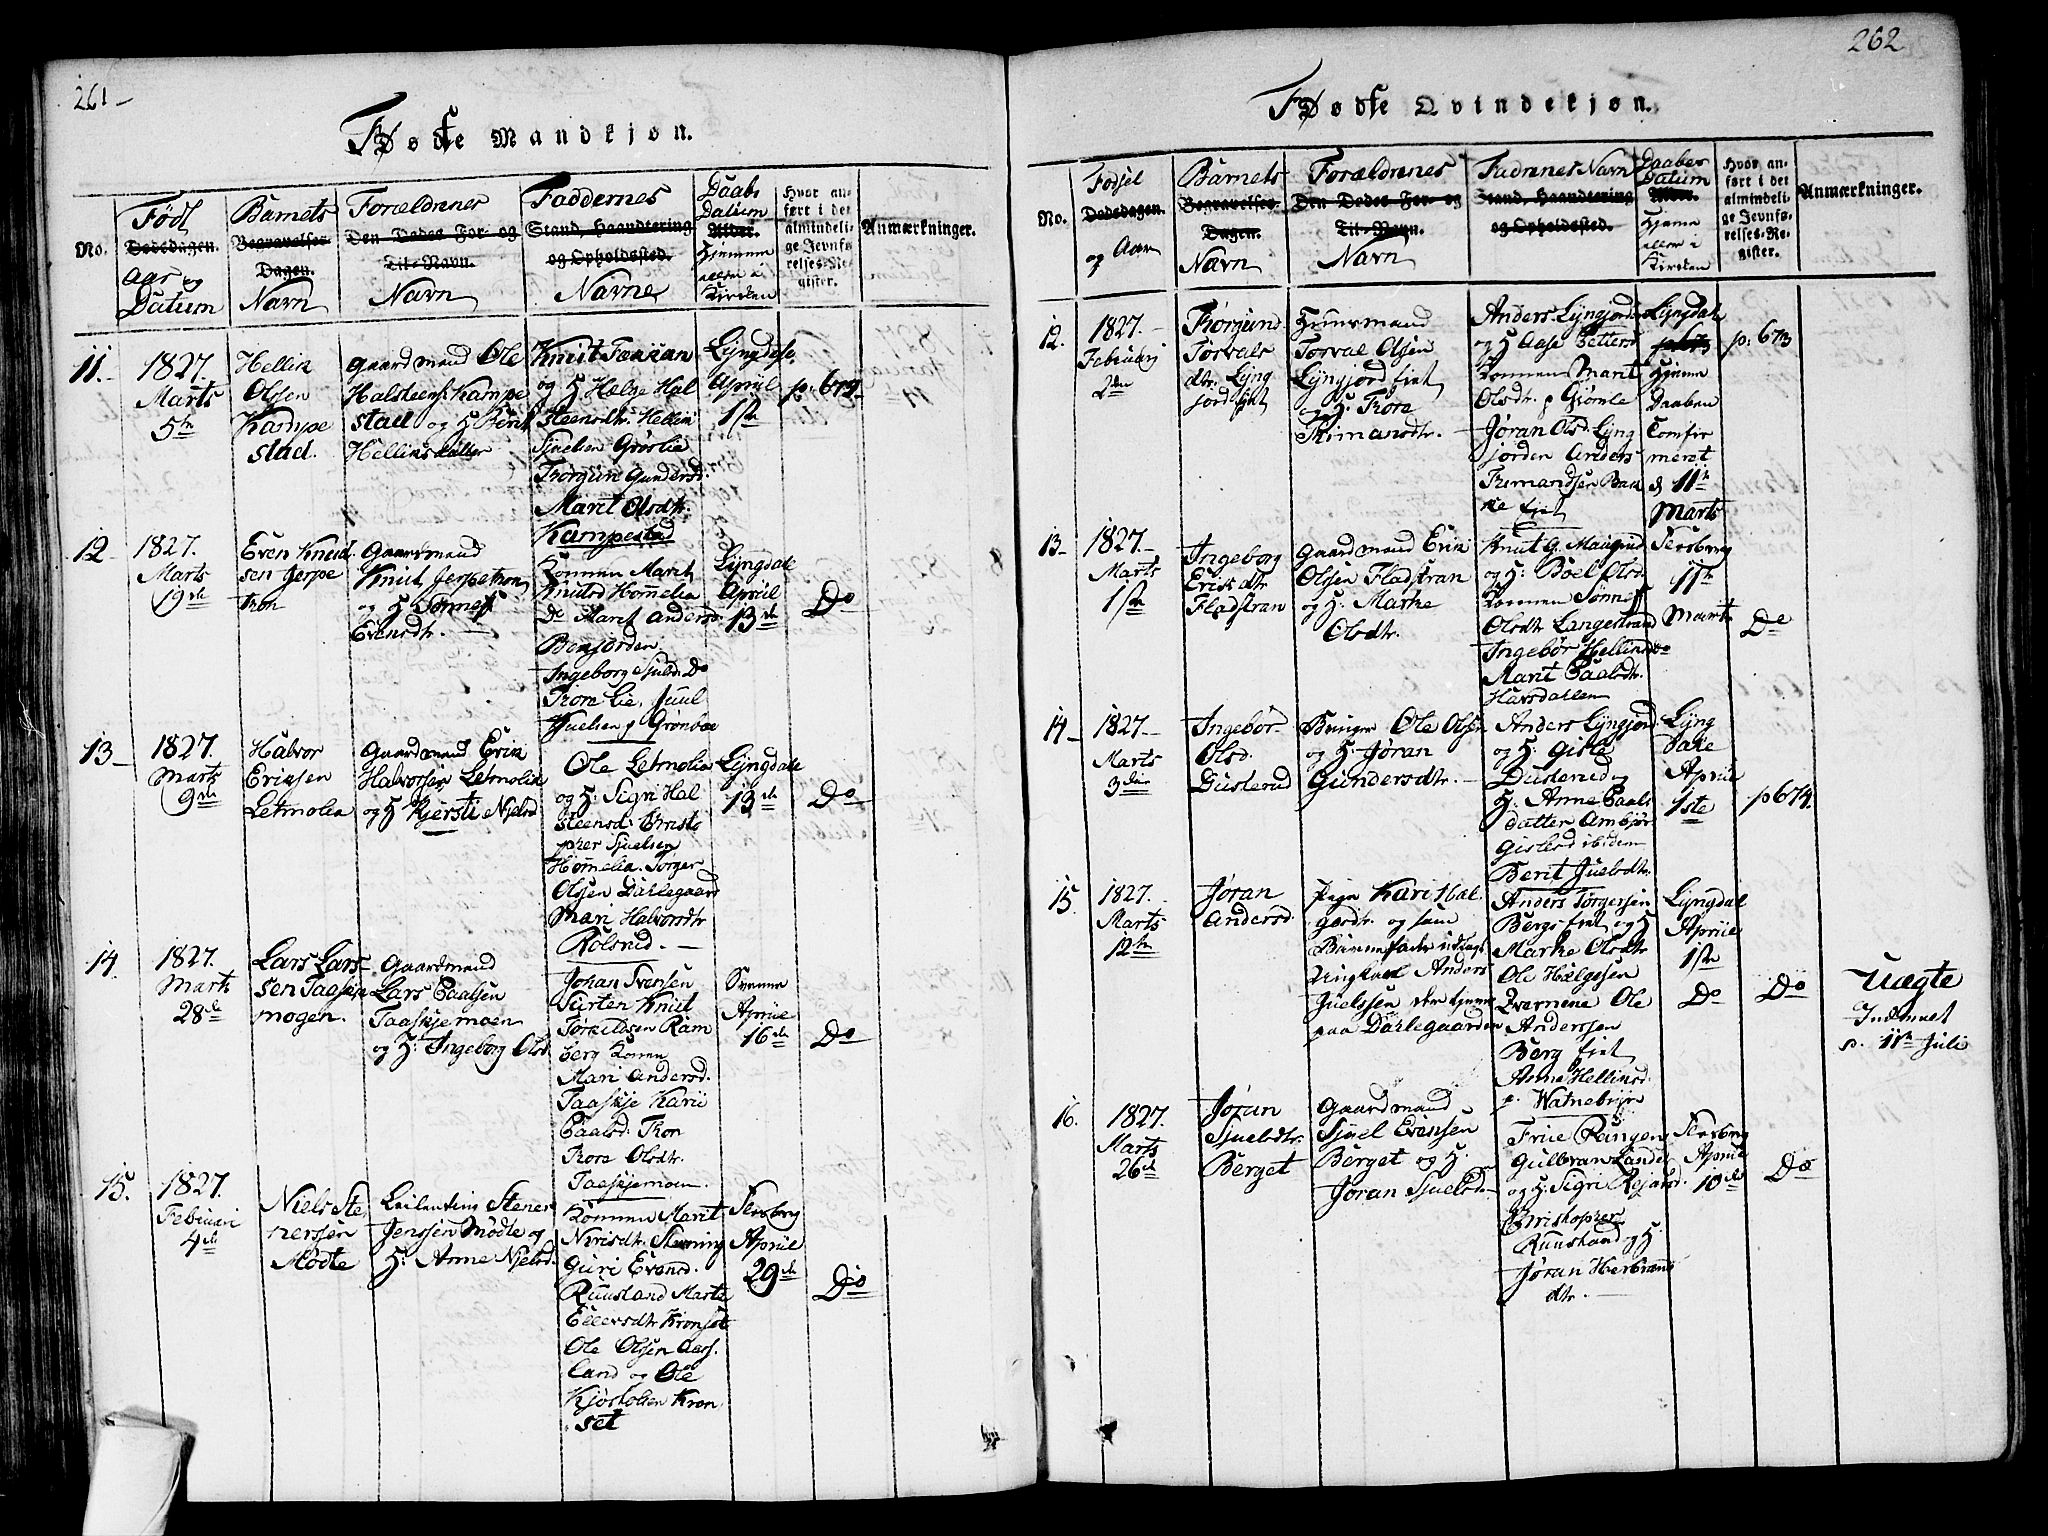 261
Fødte Mandkjøn.
No.
Født
Dødsdagen.
Aar og
Datum
Barnets
Begravelses-
Dagen.
Navn
Forældrenes
Den Dødes For- og
Til-Navn.
Navn
Faddernes
Stand, Haandtering
og Opholdssted.
Navne
Daabs
Datum
Alder.
Hjemme
eller i
Kirken
Hvor an-
ført i det
almindeli-
ge Jevnfø-
relses-Re-
gister.
Anmærkninger.
11.
1827.
Marts
5te
Hellik
Olsen
Kampe
stad.
Gaardmand Ole
Halsteens. Kampe
stad og H Berit
Hellius datter
Knut
og H Helge Hal
steensdtr. Hellik
Sjuelsen
Torgun Gundersd.
Marit Olsdtr.
Kampestad
Lyngdale
April
1ste
p. 672
12
1827.
Marts
19de
Even Knud
sen Jerpe
tron
Gaardmand
Knut Jerpetron
og H
Evensdtr.
Konnen Marit
Knutsd Hornelia
Do Marit Andersd.
Ingeborg Sjulsd. Do
Tore Lie, Juul
Lyngdale
April
13de
Do
13
1827.
Marts
9de
Halvor
Ericsen
Letmolia
Gaardmand Erik
Halvorsen Letmolie
og H Kjersti Nielsd
Ole Letmolia
og H. Sigri Hal
steensd. Christo
pher Sjuelsen
Hornelia. Torger
Olsen Dahlegaard
Mari Halvorsdtr
Rolsrud.
Lyngdale
13de
Do
14.
1827.
Marts
28de
Lars Lars-
sen Taaskje
moen.
Gaardmand
Lars Paalsen
Taaskjemoen
og H. Ingeborg Olsd.
Johan Svensen
Knut
Torkildsen Ram
berg Konen
Mari Andersd.
Taaskje Kari
Paalsd. Tron
Tore Olsdtr.
Taaskjemoen.
Svenne
April
16de
Do
15.
1827.
Februari
4de
Niels Ste
nersen
Modte
Leilending Stener
Jenssen Modte og
H. Anne Nielsd.
Konnen Marit
Guri Evensd.
Ruusland Marte
Ellevsdtr Kronset
Ole Olsen Aas-
land og Ole
Kron
set
Flesberg
April
29de
Do
262
Fødte Qvindekjøn.
No.
Fødsel
Dødsdagen.
og Aar
Barnets
Begravelses-
Dagen.
Navn
Forældrenes
Den Dødes For- og
Til-Navn.
Navn
Fadrenes Navn
Stand, Haandtering
og Opholdssted.
Daabs
Datum
Alder.
Hjemme
eller i
Kirken
Hvor an-
ført i det
almindeli-
ge Jevnfø-
relses-Re-
gister.
Anmærkninger.
12.
1827.
Februarj
2den
Torgund
Torvals
dtr. Lyng
jord eiet
Huusmand
Torval Olsen
Lyngjord eiet
og H. Tore
Anders Lyngjordet
og H Aase Petters
Konnen Marit
Olsdtr. p
Jøran Olsd. Lyng
jorden Anders
Lyngdale
Hjemme
Daaben
Comfir
meret
d 11te
Marts
p. 673
13
1827.
Marts
1ste
Ingeborg
Eriks dtr
Fladstran
Gaardmand Erik
Olsen Fladstran
og H. Marke
Olsdtr.
Knut G. Maugrud
og H. Boel Olsd.
Konnen
Olsdtr Langestrand
Ingebør Hellinsd
Marit Paalsdtr.
Flesberg
11te
Marts
Do
14
1827.
Marts
3die
Ingebør
Olsd.
Dusterud
Bruger Ole Olsen
og H Jøran
Gundersdtr.
Anders Lyngjord
og H. Gisle
Dusterud og
H. Anne Paals
datter Ambjør
Gislesd ibidem
Berit Juelsdtr.
Lyng
dale
April
1ste
p 674.
15
1827.
Marts
12te
Jøran
Andersd.
Pige Kari Hal
gersdtr. og som
Barnefader udlagt
Ungkarl Anders
Juelssen der tjener
paa Dahlegaarden
Anders Torgersen
Bergs eiet og H
Marke Olsdtr
Ole Helgesen
Ole
Anderssen
Berg eiet
Anne Hellinsd.
Lyngdal
April
1ste
Do
Do
Uægte
p. 11te Juli
16.
1827.
Marts
26de
Jøran
Sjuelsdtr.
Berget
Gaardmand
Sjuel Evensen
Berget og H.
Jøran Sjuelsd.
Gulbran Lande
og H. Sigri
Christopher
Ruusland og H.
Jøran Herbrans
dtr.
Flesberg
April
10de
Do